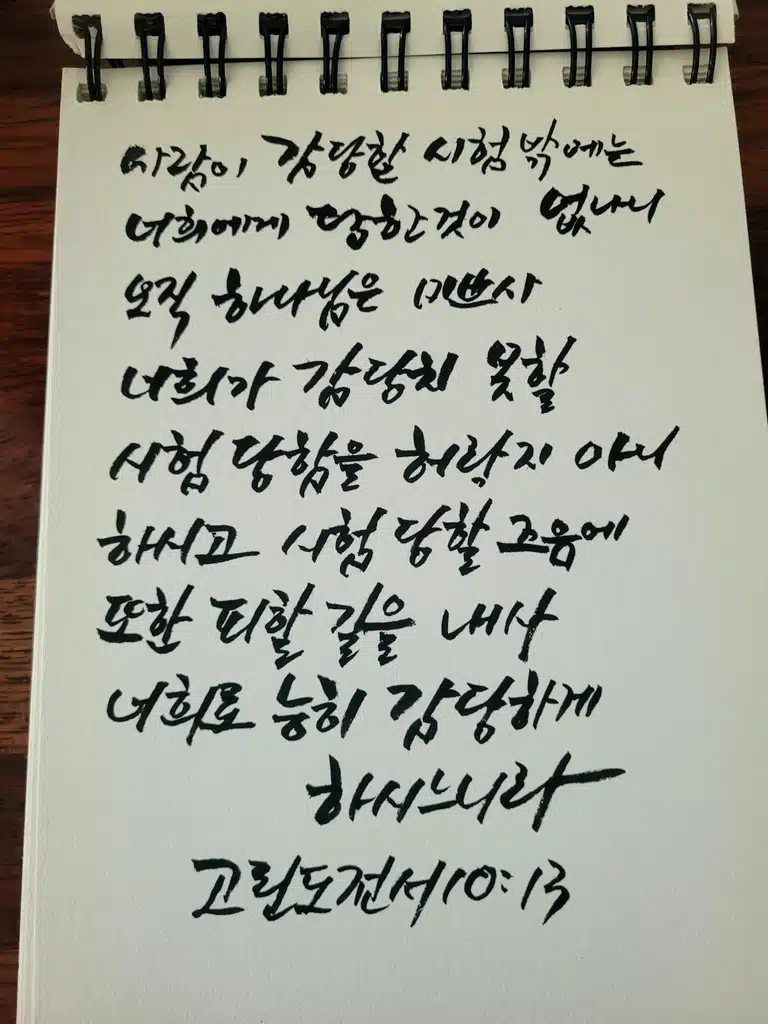 사람이 감당할 시험 밖에는
너희에게 당한 것이 없나니
오직 하나님은 미쁘사
너희가 감당치 못할
시험 당함을 허락지 아니
하시고 시험 당할 즈음에
또한 피할 길을 내사
너희로 능히 감당하게
하시느니라
고린도전서10:13